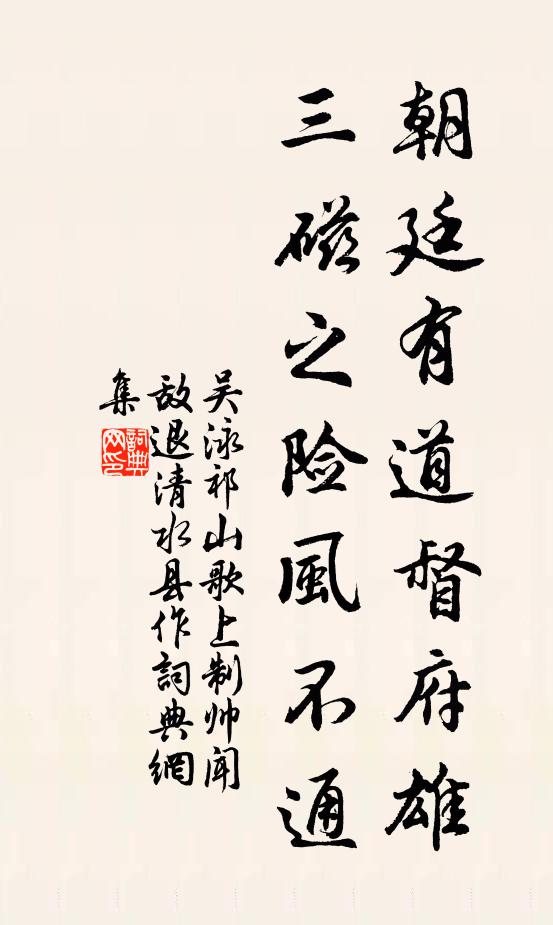 朝廷有道督府雄
三磁之险風不通
吴泳祁山歌上制帅闻
敌退清水县作詞典網
集
詞典
网印